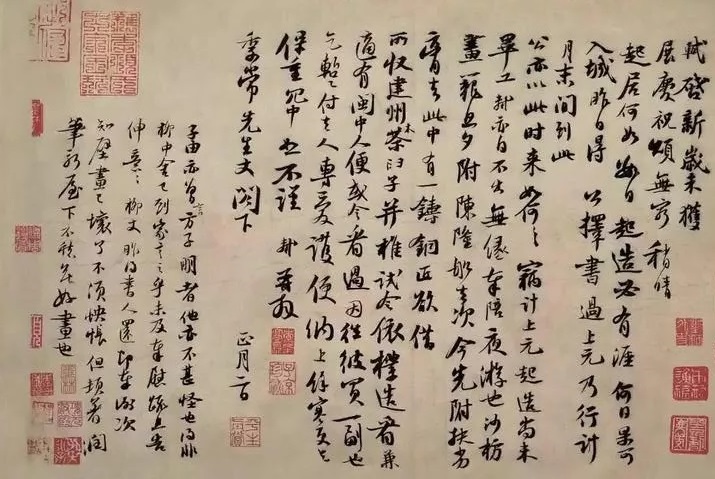 軾啓新歲未獲
展慶祝頌無窮稍晴
起居何如數日起造必有涯何日果可
入城昨日得公擇書過上元乃行計
月末間到此
公亦以此时来如何々竊計上元起造尚未
畢工軾亦自不出無緣奉陪夜游也沙枋
畫籠旦夕附陳隆船去次今先附扶劣
膏去此中有一鑄銅匠欲借
所收建州木茶臼子并椎試令依樣造看兼
適有閩中人便或令看過因往彼買一副也
乞暫付去人專愛護便納上餘寒更乞
保重冗中恕不謹軾再拜
季常先生丈閤下
正月二日
子由亦曾言方子明者他亦不甚怪也得非
柳中舍已到家言之乎未及奉慰疏且告
伸意々柳丈昨得書人還即奉謝次
知壁畫已壞了不須怏悵但頓著潤
筆新屋下不愁無好畫也